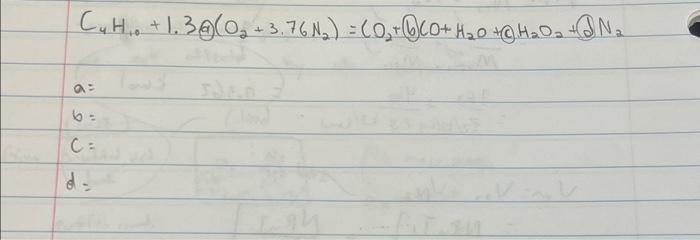 C₄H₁₀ + 1.3ⓐ(O₂ + 3.76N₂) = CO₂ + ⓑCO + H₂O + ⓒH₂O₂ + ⓓN₂
a=
b=
C=
d=